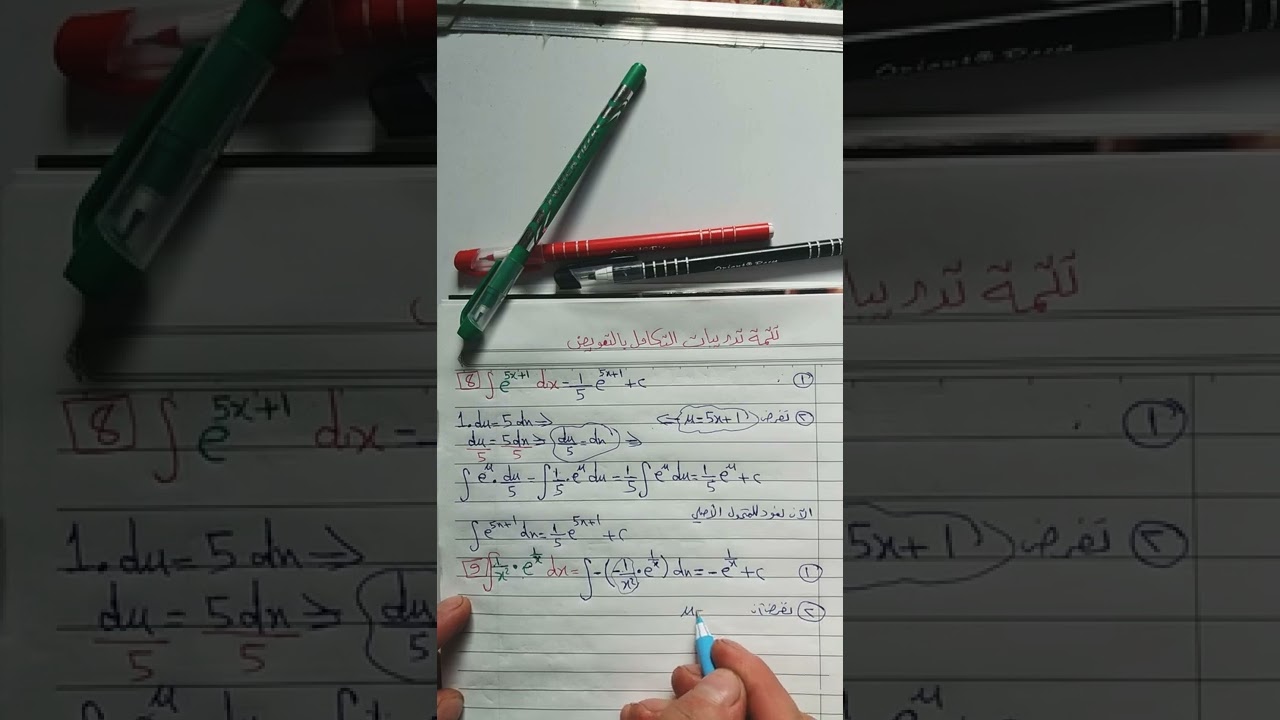 تتمة تدريبات التكامل بالتعويض
8 ∫ e^{5x+1} dx = 1/5 e^{5x+1} + c ①
② نفرض μ = 5x+1 ⇐
1.du = 5dx ⇒
du/5 = 5dx/5 ⇒ du/5 = dx ⇒
∫ e^μ · du/5 = ∫ 1/5 · e^μ du = 1/5 ∫ e^μ du = 1/5 e^μ + c
الآن نعود للمتحول الأصلي
∫ e^{5x+1} dx = 1/5 e^{5x+1} + c
9 ∫ 1/x² · e^{1/x} dx = ∫ -(-1/x² · e^{1/x}) dx = -e^{1/x} + c ①
② نفرض أن μ =